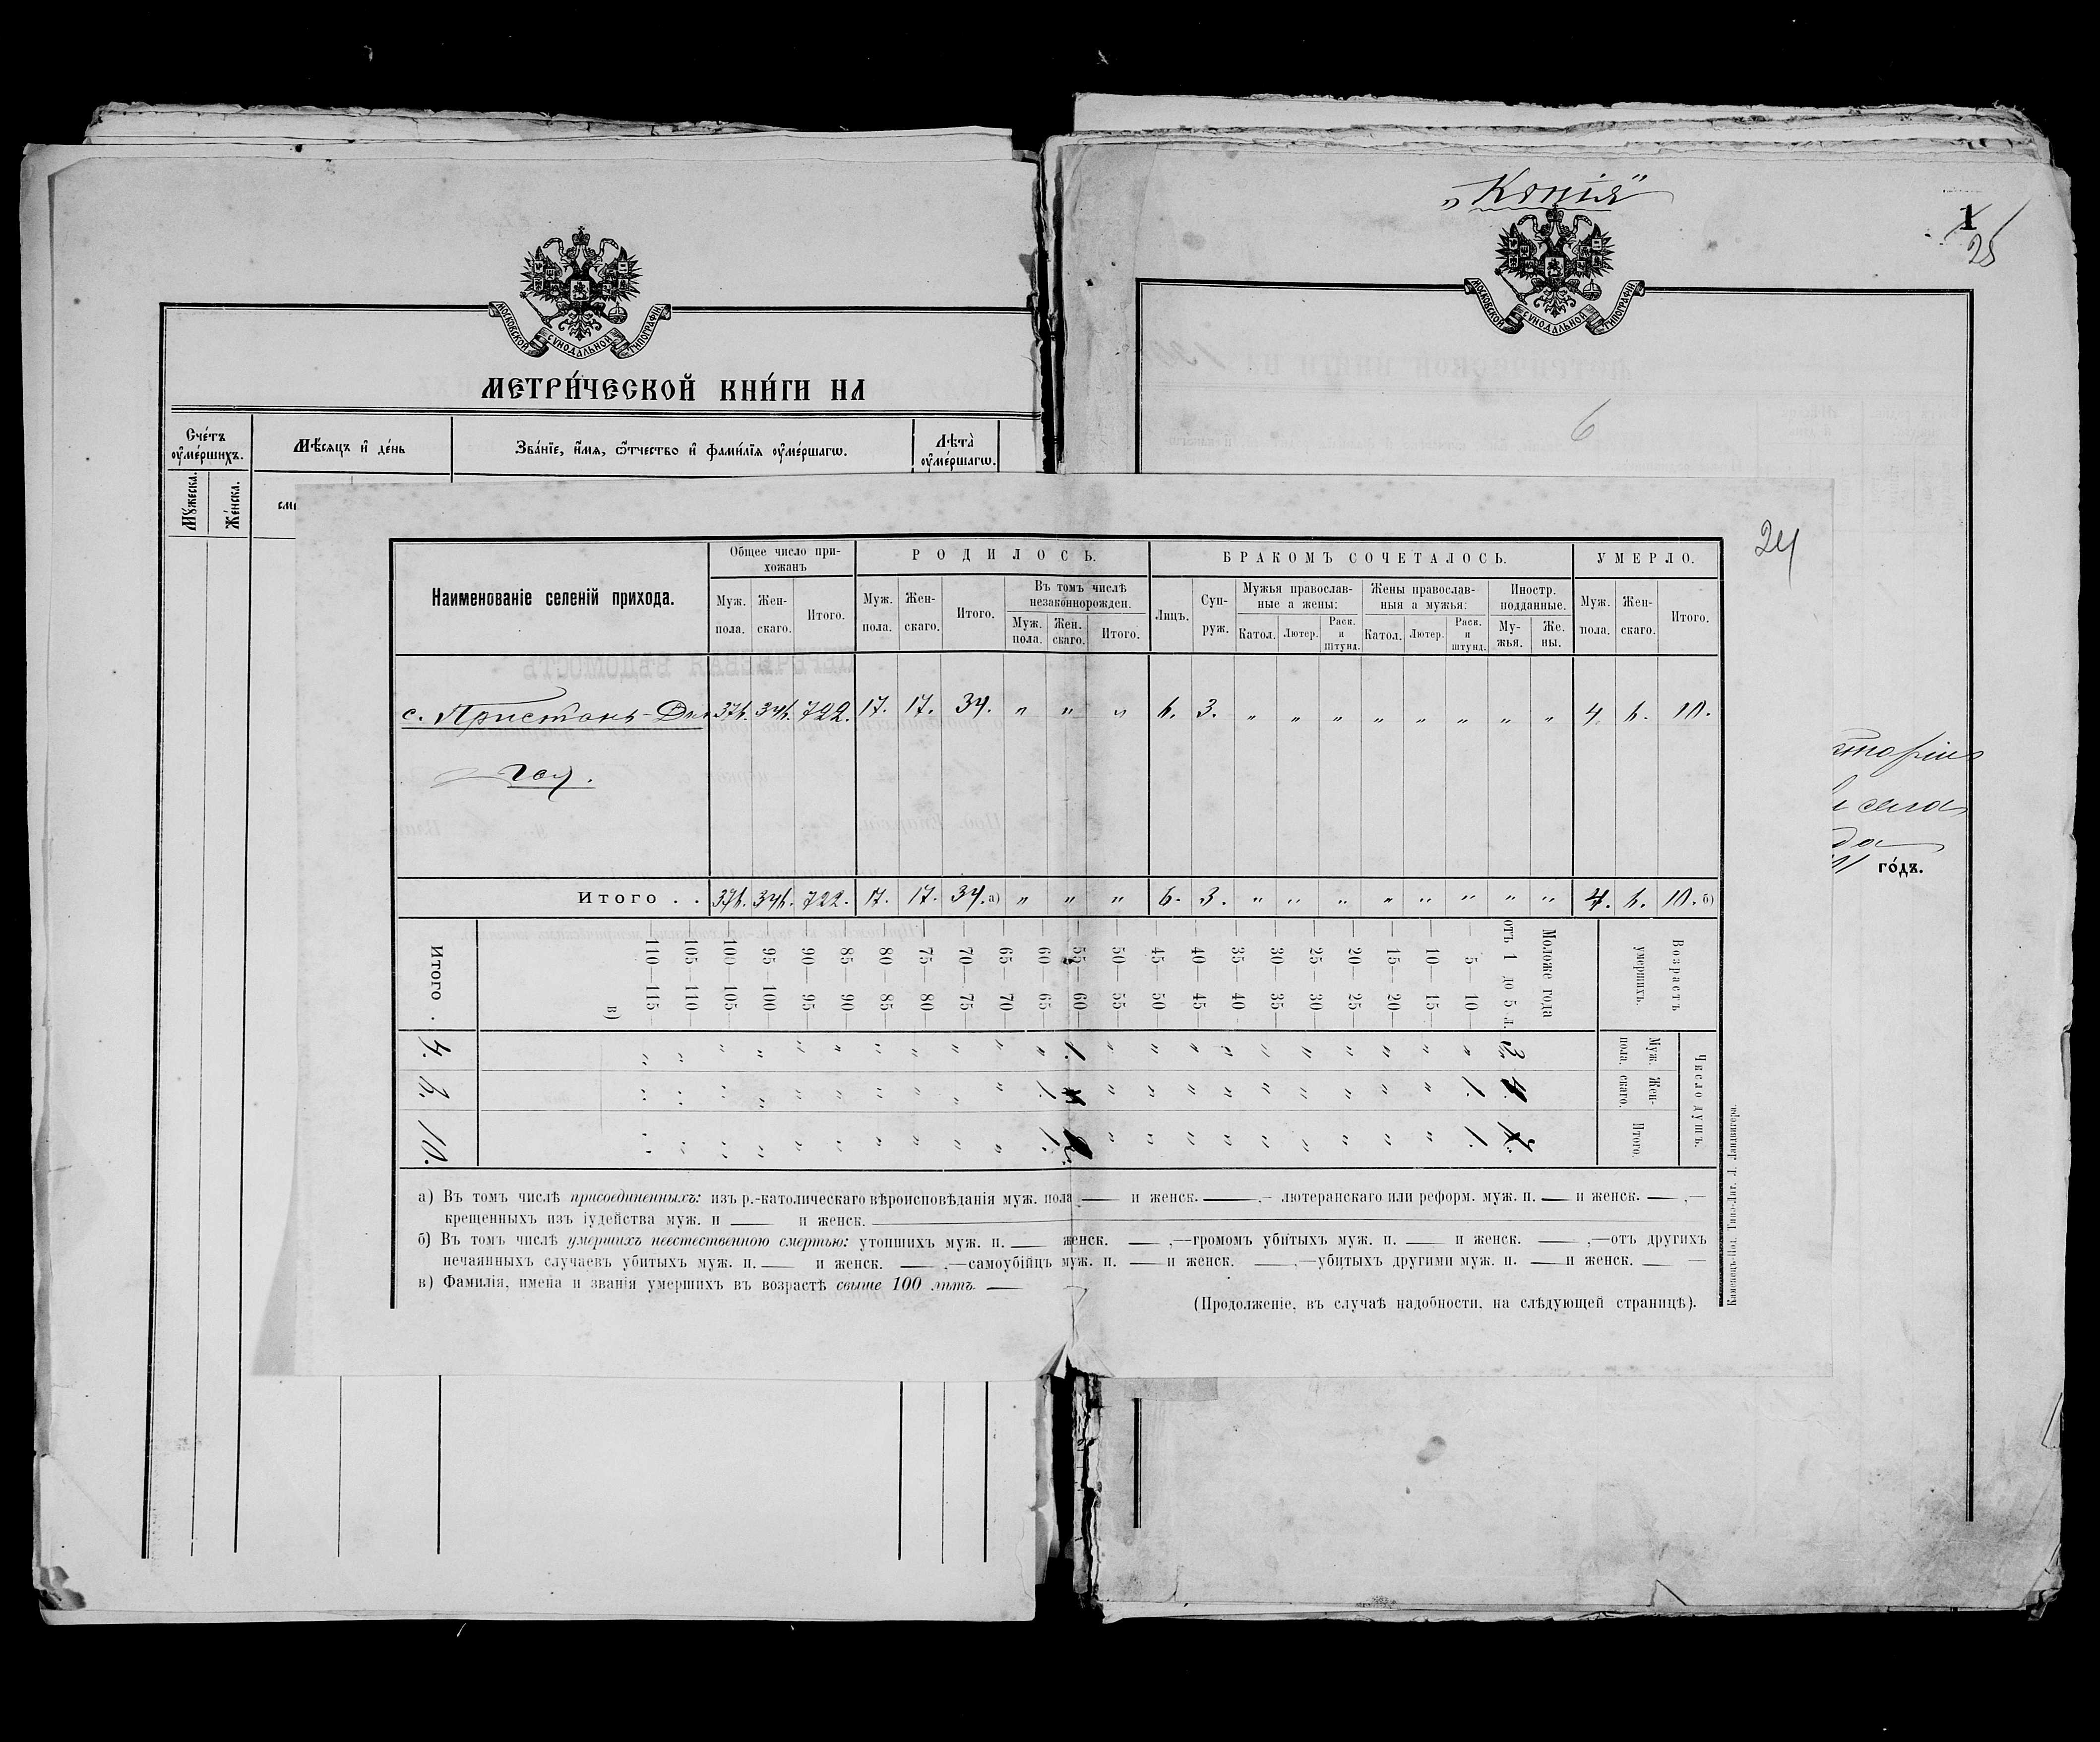 МОСКОВСКОЙ СѴНОДАЛЬНОЙ ТИПОГРАФІИ
МЕТРИ́ЧЕСКОЙ КНИ́ГИ НА
Сче́тъ ᲂу҆ме́ршихъ.
Мѣ́сяцъ и҆ де́нь
Зва́нїе, и҆́мѧ, ѻ҆́тчество и҆ фами́лїѧ ᲂу҆ме́ршагѡ.
Лѣ́та ᲂу҆ме́ршагѡ.
Мꙋ́жеска.
Же́нска.
„Копія"
МОСКОВСКОЙ СѴНОДАЛЬНОЙ ТИПОГРАФІИ
1
25
6
24
Наименованіе селеній прихода.
Общее число при-
хожанъ
РОДИЛОСЬ.
БРАКОМЪ СОЧЕТАЛОСЬ.
УМЕРЛО.
Муж. пола.
Жен- скаго.
Итого.
Муж. пола.
Жен- скаго.
Итого.
Въ томъ числѣ незаконнорожден.
Муж. пола.
Жен. скаго.
Итого.
Лицъ.
Суп- руж.
Мужья православ- ные а жены:
Катол.
Лютер.
Раск. и штунд.
Жены православ- ныя а мужья:
Катол.
Лютер.
Раск. и штунд.
Иностр. подданные.
Му- жья.
Же. ны.
Муж. пола.
Жен- скаго.
Итого.
с. Пристань 722. 17. 17. 34. „ „ „ 6. 3. „ „ „ „ „ „ „ „ 4 6. 10.
Итого . . 722. 17. 17. 34. а) „ „ „ 6. 3. „ „ „ „ „ „ „ „ 4. 6. 10. б)
Возрастъ умершихъ.
Число душъ.
Муж. пола.
Жен- скаго.
Итого.
Моложе года
отъ 1 до 5 л.
— 5—10—
— 10—15—
— 15—20—
— 20—25—
— 25—30—
— 30—35—
— 35—40—
— 40—45—
— 45—50—
— 50—55—
— 55—60—
— 60—65—
— 65—70—
— 70—75—
— 75—80—
— 80—85—
— 85—90—
— 90—95—
— 95—100—
— 100—105—
— 105—110—
— 110—115—
в)
Итого .
4.
6.
10.
а) Въ томъ числѣ присоединенныхъ: изъ р.-католическаго вѣроисповѣданія муж. пола — и женск. —,— лютеранскаго или реформ. муж. п. — и женск. —,—
крещенныхъ изъ іудейства муж. п — и женск. —
б) Въ томъ числѣ умершихъ неестественною смертью: утопшихъ муж. п. — женск. —,—громомъ убитыхъ муж. п. — и женск. —,—отъ другихъ
нечаянныхъ случаевъ убитыхъ муж. п. — и женск. —,—самоубійцъ муж. п. — и женск. —,—убитыхъ другими муж. п. — и женск. — —
в) Фамилія, имена и званія умершихъ въ возрастѣ свыше 100 лѣтъ. —
(Продолженіе, въ случаѣ надобности, на слѣдующей страницѣ).
Каменецъ-Под. Типо-Лит. Л. Ландвигера.
села
да
го́дъ.